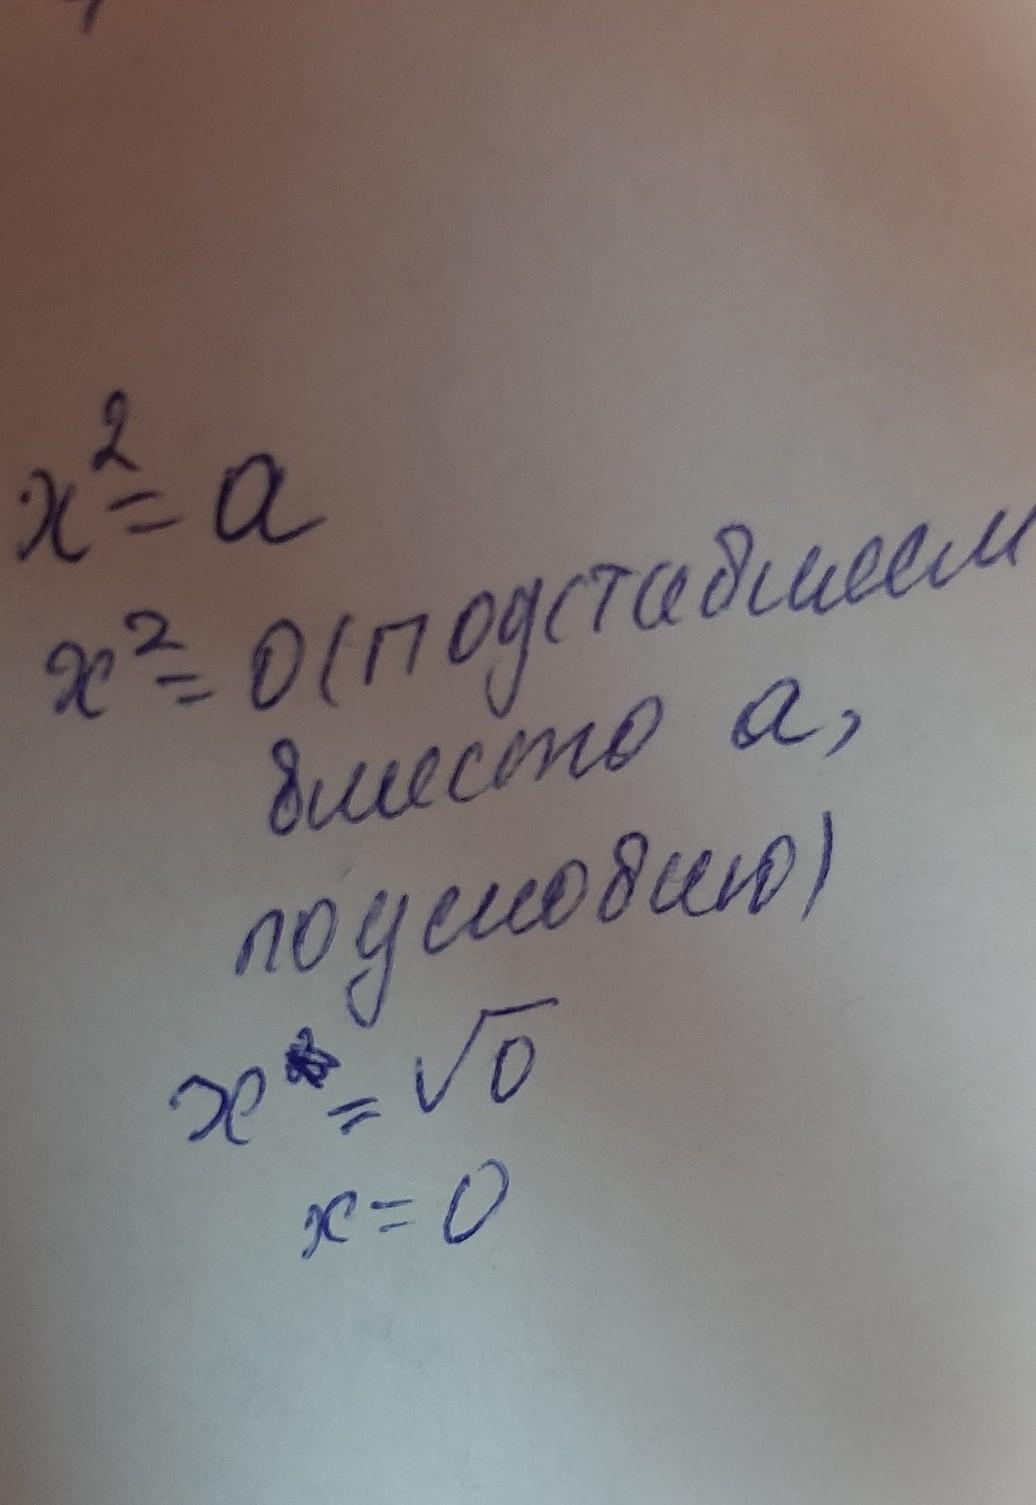 x² = a
x² = 0 (подставляем
вместо a,
по условию)
x = √0
x = 0